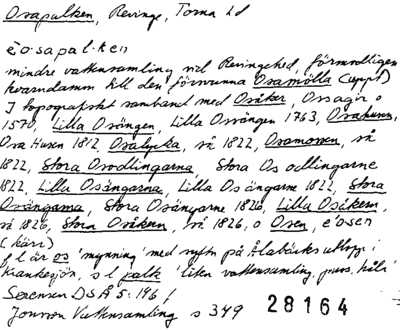 Osapalken, Revinge, Torna hd
eosapal·ken
mindre vattensamling vid Revingehed, förmodligen
kvarndamm till den försvunna Osamölla (uppt)
I topografiskt samband med Osåker, Ossagir o
1570, Lilla Osängen, Lilla Ossrängen 1763, Osahusen,
Osa Husen 1812 Osalycka, så 1822, Osamossen, så
1822, Stora Osodlingarna Stora Os odlingarne
1822, Lilla Osängarna, Lilla Os ängarne 1822, Stora
Osängarna, Stora Osängarne 1826, Lilla Osåkern,
så 1826, Stora Osåkern, så 1826, o Osen, e osen
(kärr)
f l är os 'mynning' med syftn på Ålabäcks utlopp i
Krankesjön, s l palk 'liten vattensamling, puss, håla'
Sørensen DSÅ 5: 196 f
Jonsson Vattensamling s 349 28164